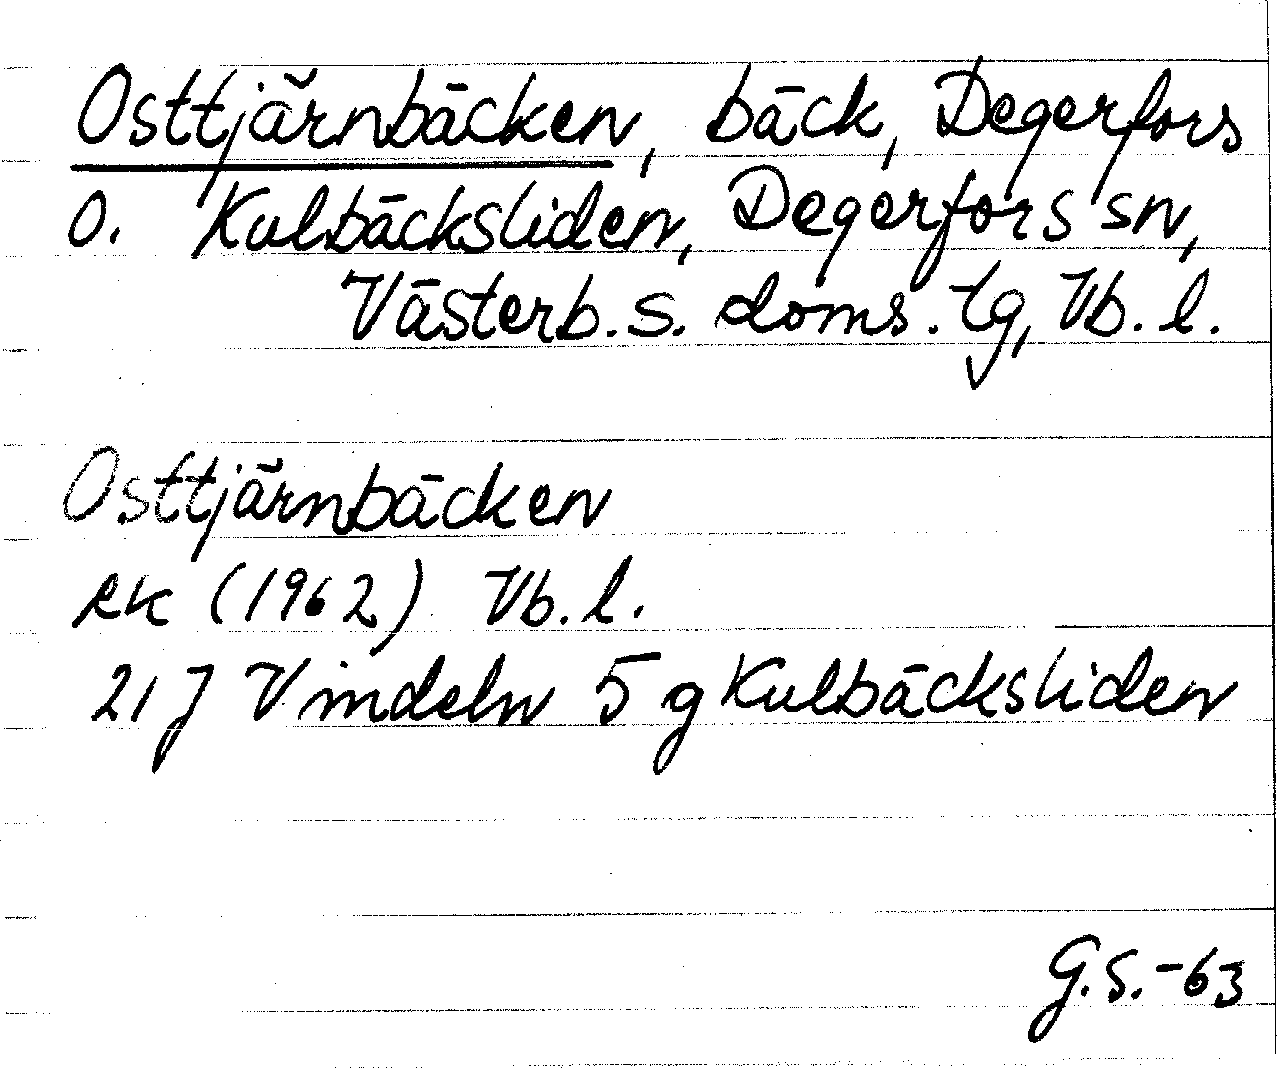 Osttjärnbäcken, bäck, Degerfors
o. Kulbäcksliden, Degerfors sn,
Västerb. s. doms. tg, Vb. l.
Osttjärnbäcken
RK (1962) Vb. l.
21 J Vindeln 5 g Kulbäcksliden
G.S.-63